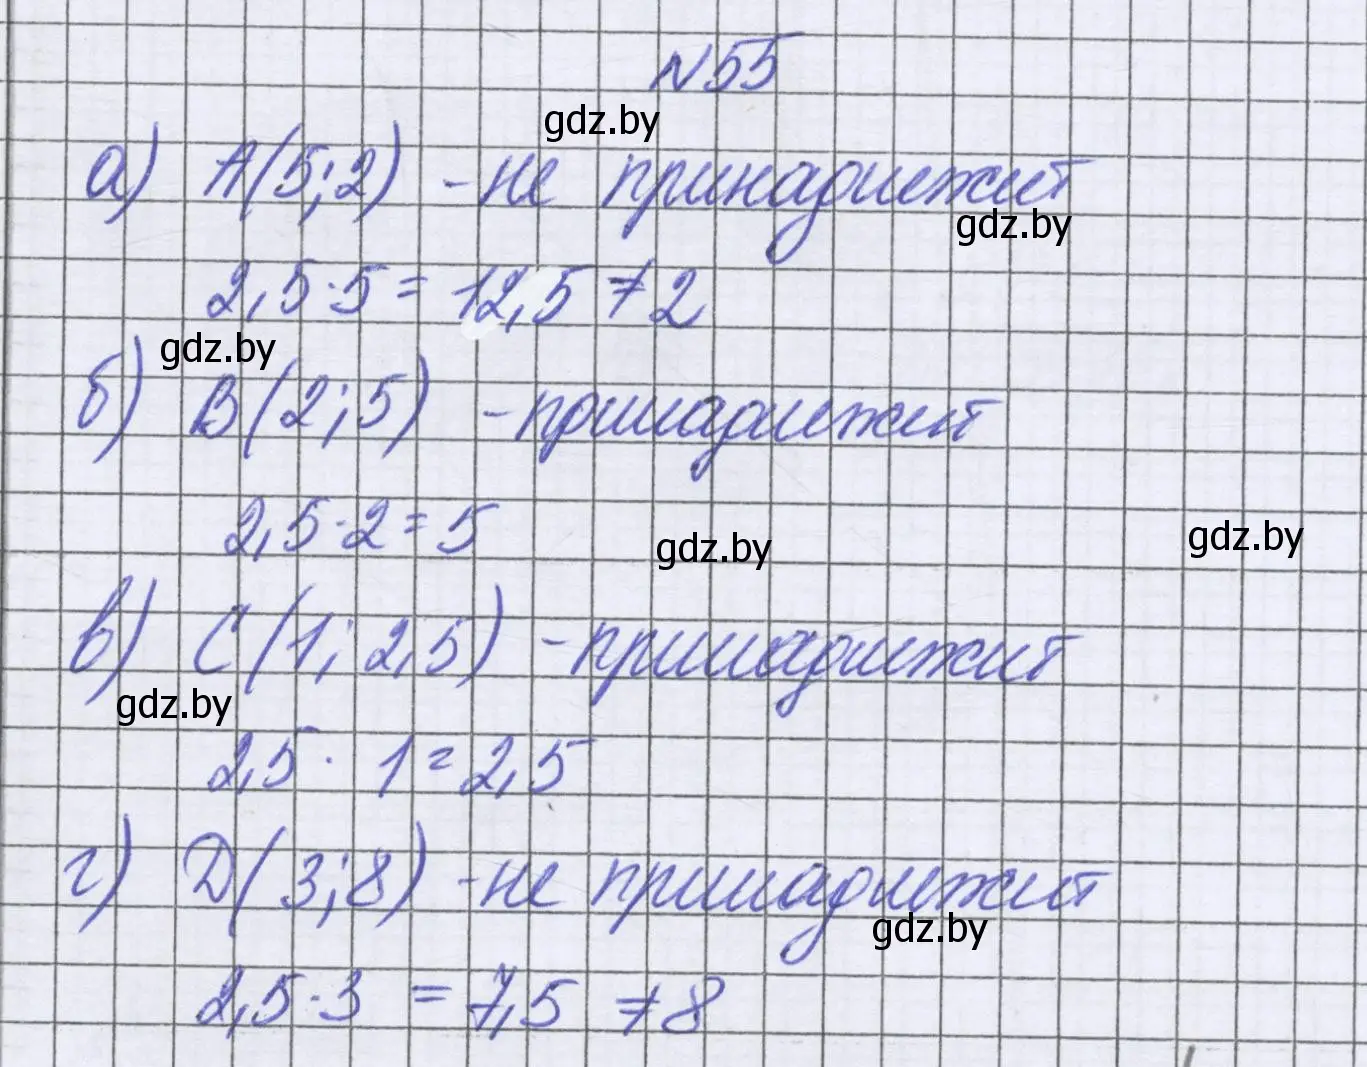 №55
gdz.by
а) A(5;2) - не принадлежит
gdz.by
2,5·5 = 12,5 ≠ 2
gdz.by
б) B(2;5) - принадлежит
2,5·2 = 5
gdz.by
gdz.by
в) C(1; 2,5) - принадлежит
gdz.by
2,5 · 1 = 2,5
г) D(3;8) - не принадлежит
gdz.by
2,5·3 = 7,5 ≠ 8